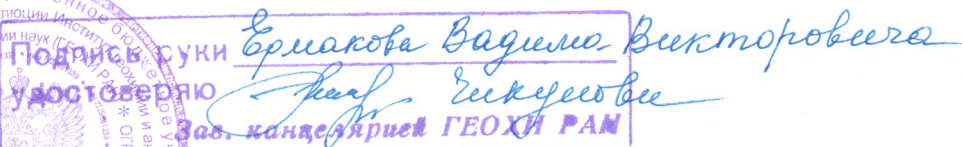 Подпись руки Ермакова Вадима Викторовича
удостоверяю
Зав. канцелярией ГЕОХИ РАН